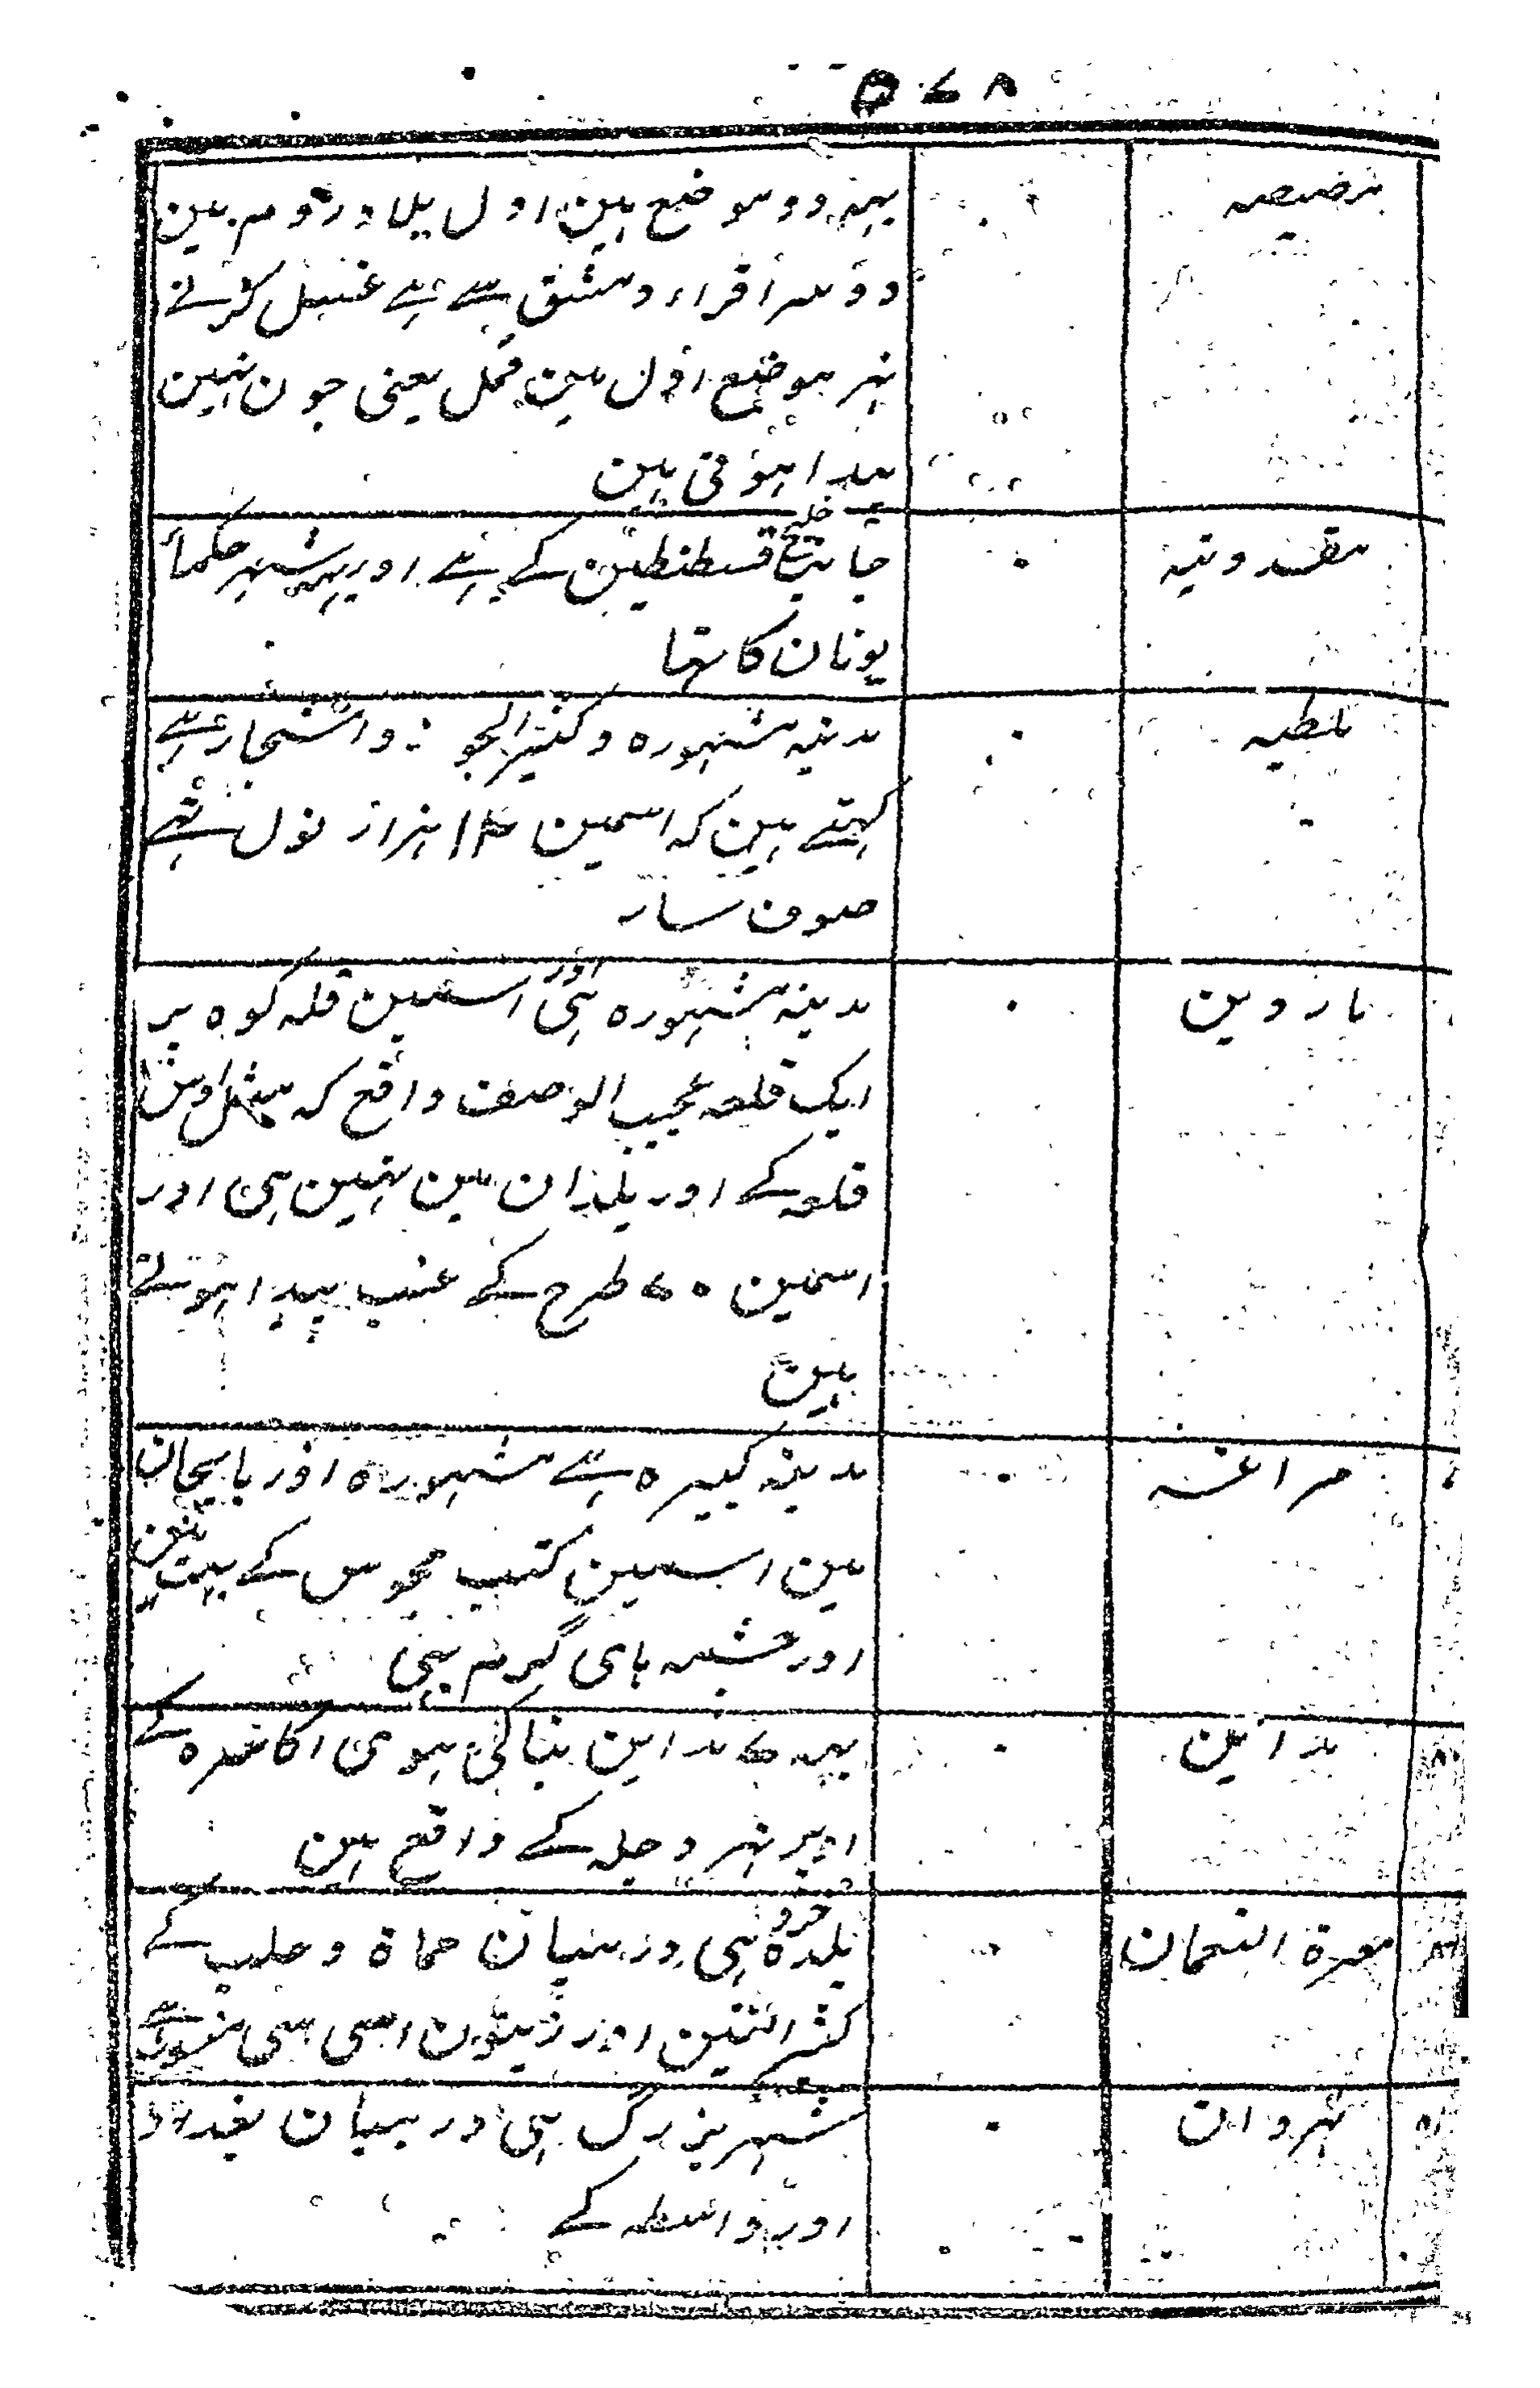 ۵۷۸
یہہ دو موضع ہین اول بلاد روم مین
دوسرا قراء دمشق سے ہے غسل کرنے
نہر موضع اول مین قمل یعنی جون نہین
پیدا ہوتی ہین
مقدونیہ
جانب خلیج قسطنطین کے ہے اور یہہ شہر حکماء
یونان کا تہا
ملطیہ
مدینہ مشہورہ و کثیر الجوز و اشجار ہے
کہتے ہین کہ اسمین ۱۲ ہزار نول تہے
صوف ساز
ماردین
مدینہ مشہورہ ہی اور اسمین قلہ کوہ پر
ایک قلعہ عجیب الوصف واقع کہ مثل اوس
قلعہ کے اور بلدان مین نہین ہی اور
اسمین ۷۰ طرح کے عنب پیدا ہوتے
ہین
مراغہ
مدینہ کبیرہ ہے مشہورہ اذربایجان
مین اسمین کتب مجوس کے بہت ہین
اور چشمہ ہای گرم بہی
مداین
یہہ ۷ مداین بنائی ہوی اکاسرہ کے
اوپر نہر دجلہ کے واقع ہین
معرۃ النعمان
بلدہ ہی درمیان حماۃ و حلب کے
کثیر التین اور زیتون اسی سی منسوب ہے
نہروان
شہر بزرگ ہی درمیان بغداد
اور واسطہ کے